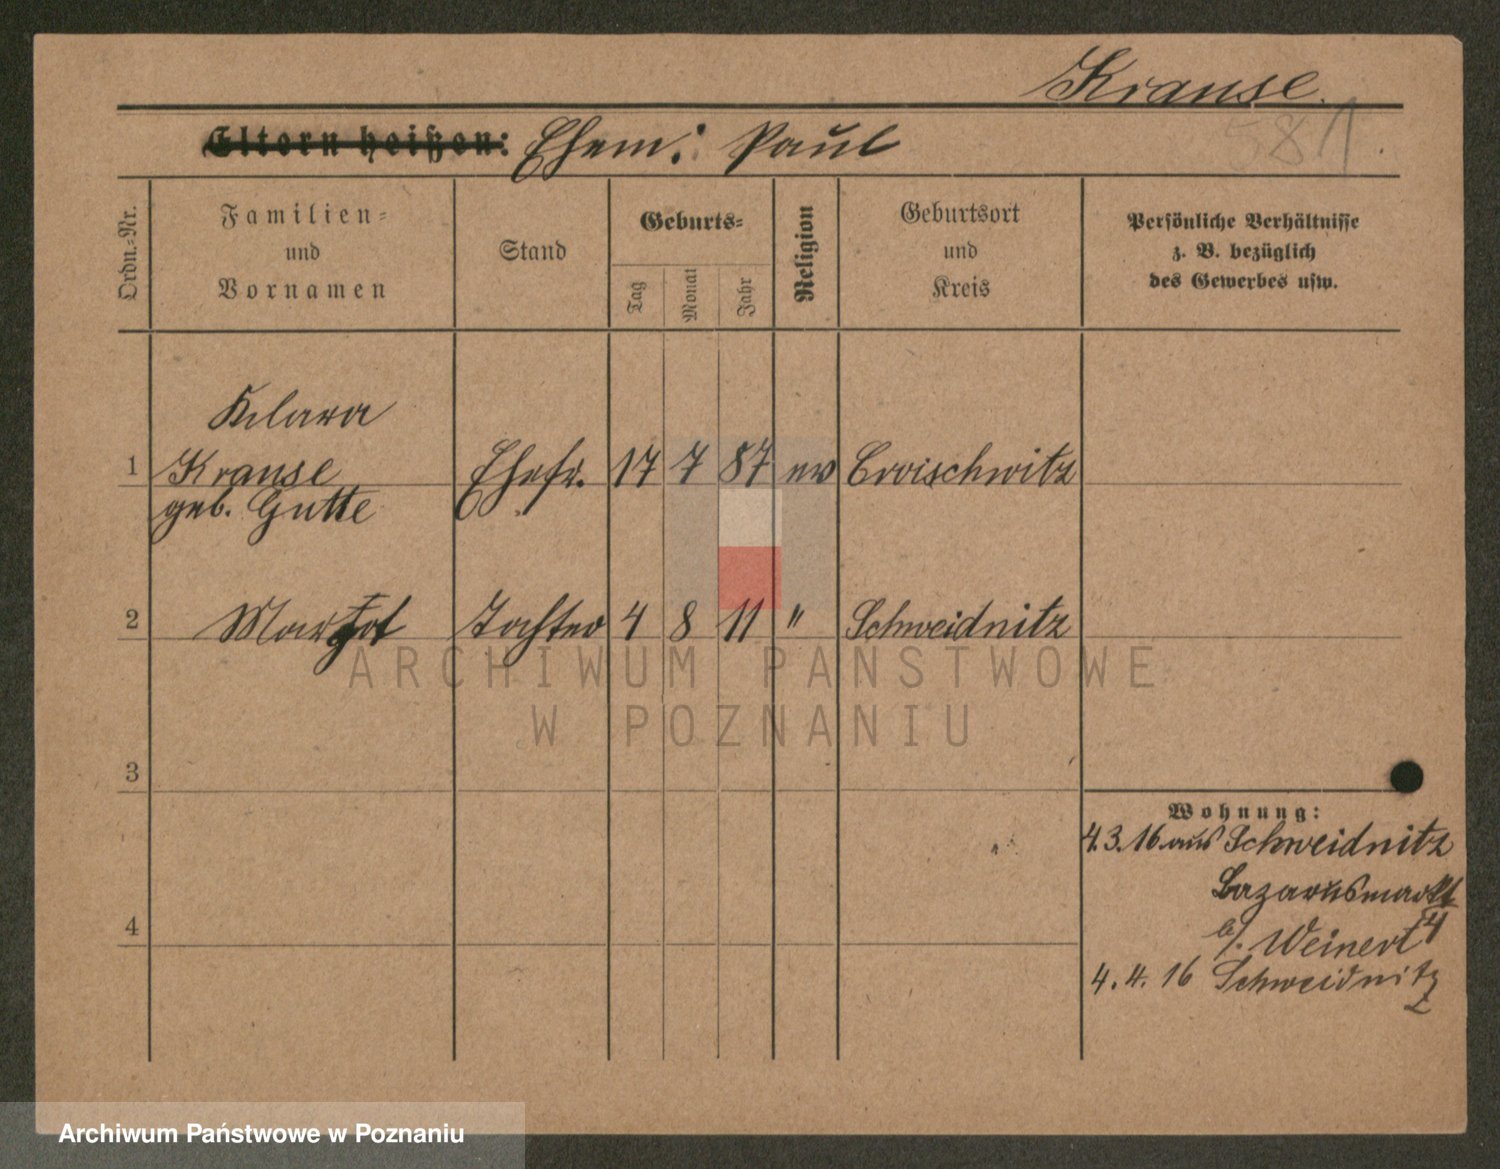 Krause.
581
Eltern heißen: Ehem: Paul
Ordn.-Nr.
Familien-
und
Vornamen
Stand
Geburts-
Tag
Monat
Jahr
Religion
Geburtsort
und
Kreis
Persönliche Verhältnisse
z. B. bezüglich
des Gewerbes usw.
Klara
1 Krause Ehefr. 17 7 87 ev Croischwitz
geb. Gutte
2 Margot Tochter 4 8 11 " Schweidnitz
3
4
Wohnung:
4.3.16 aus Schweidnitz
Lazarusmarkt
b/. Weinert
4.4.16 Schweidnitz
ARCHIWUM PAŃSTWOWE
W POZNANIU
Archiwum Państwowe w Poznaniu